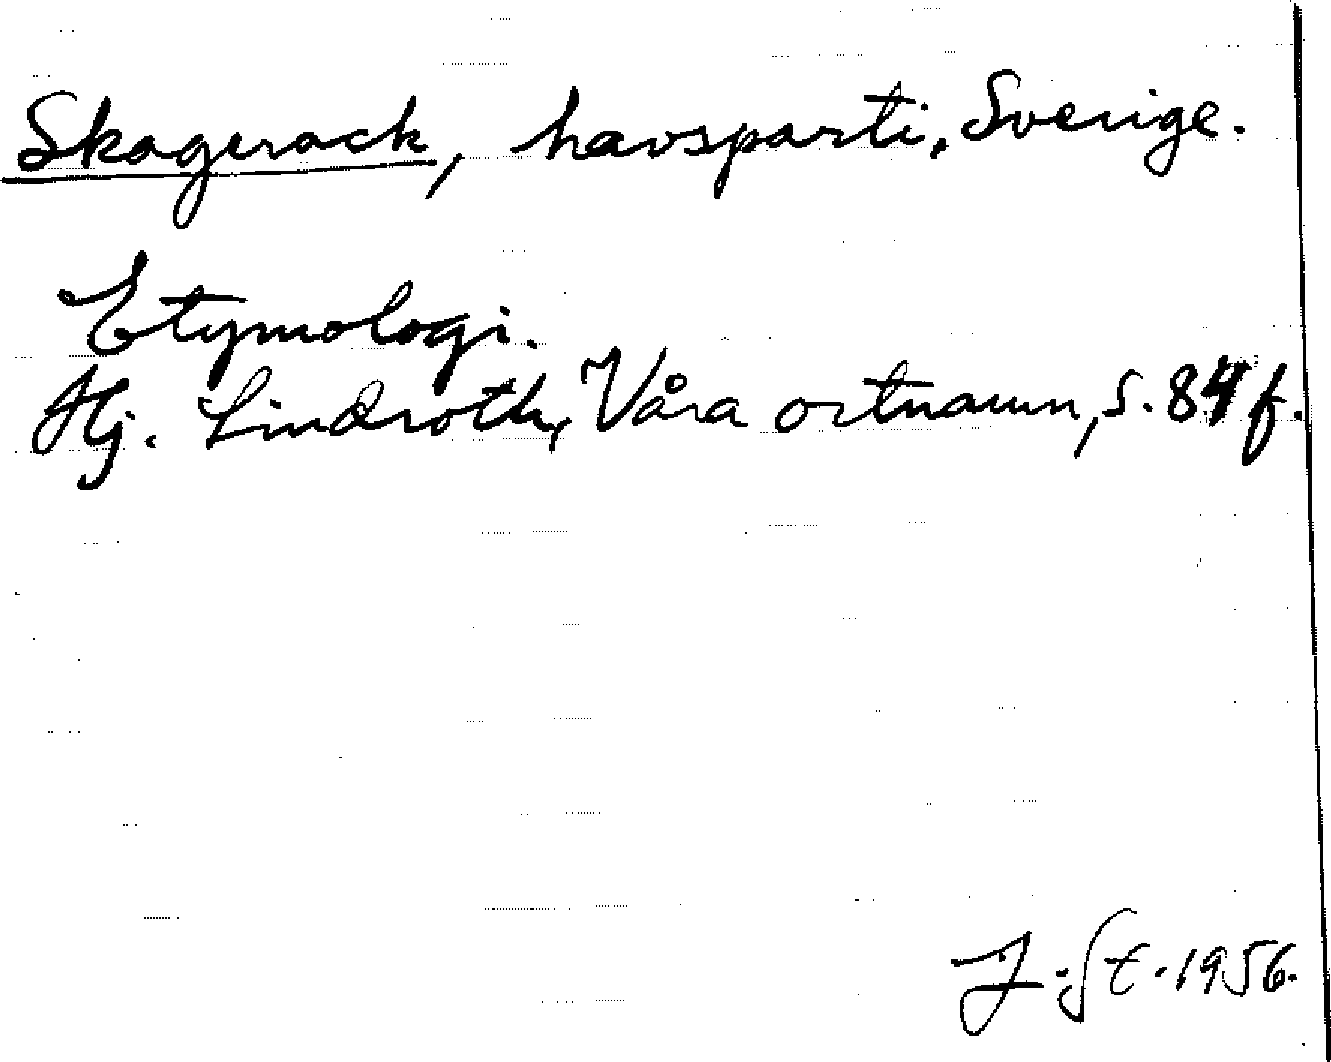 Skagerack, havsparti, Sverige.
Etymologi.
Hj. Lindroth, Våra ortnamn, s. 84 f.
J. St. 1956.